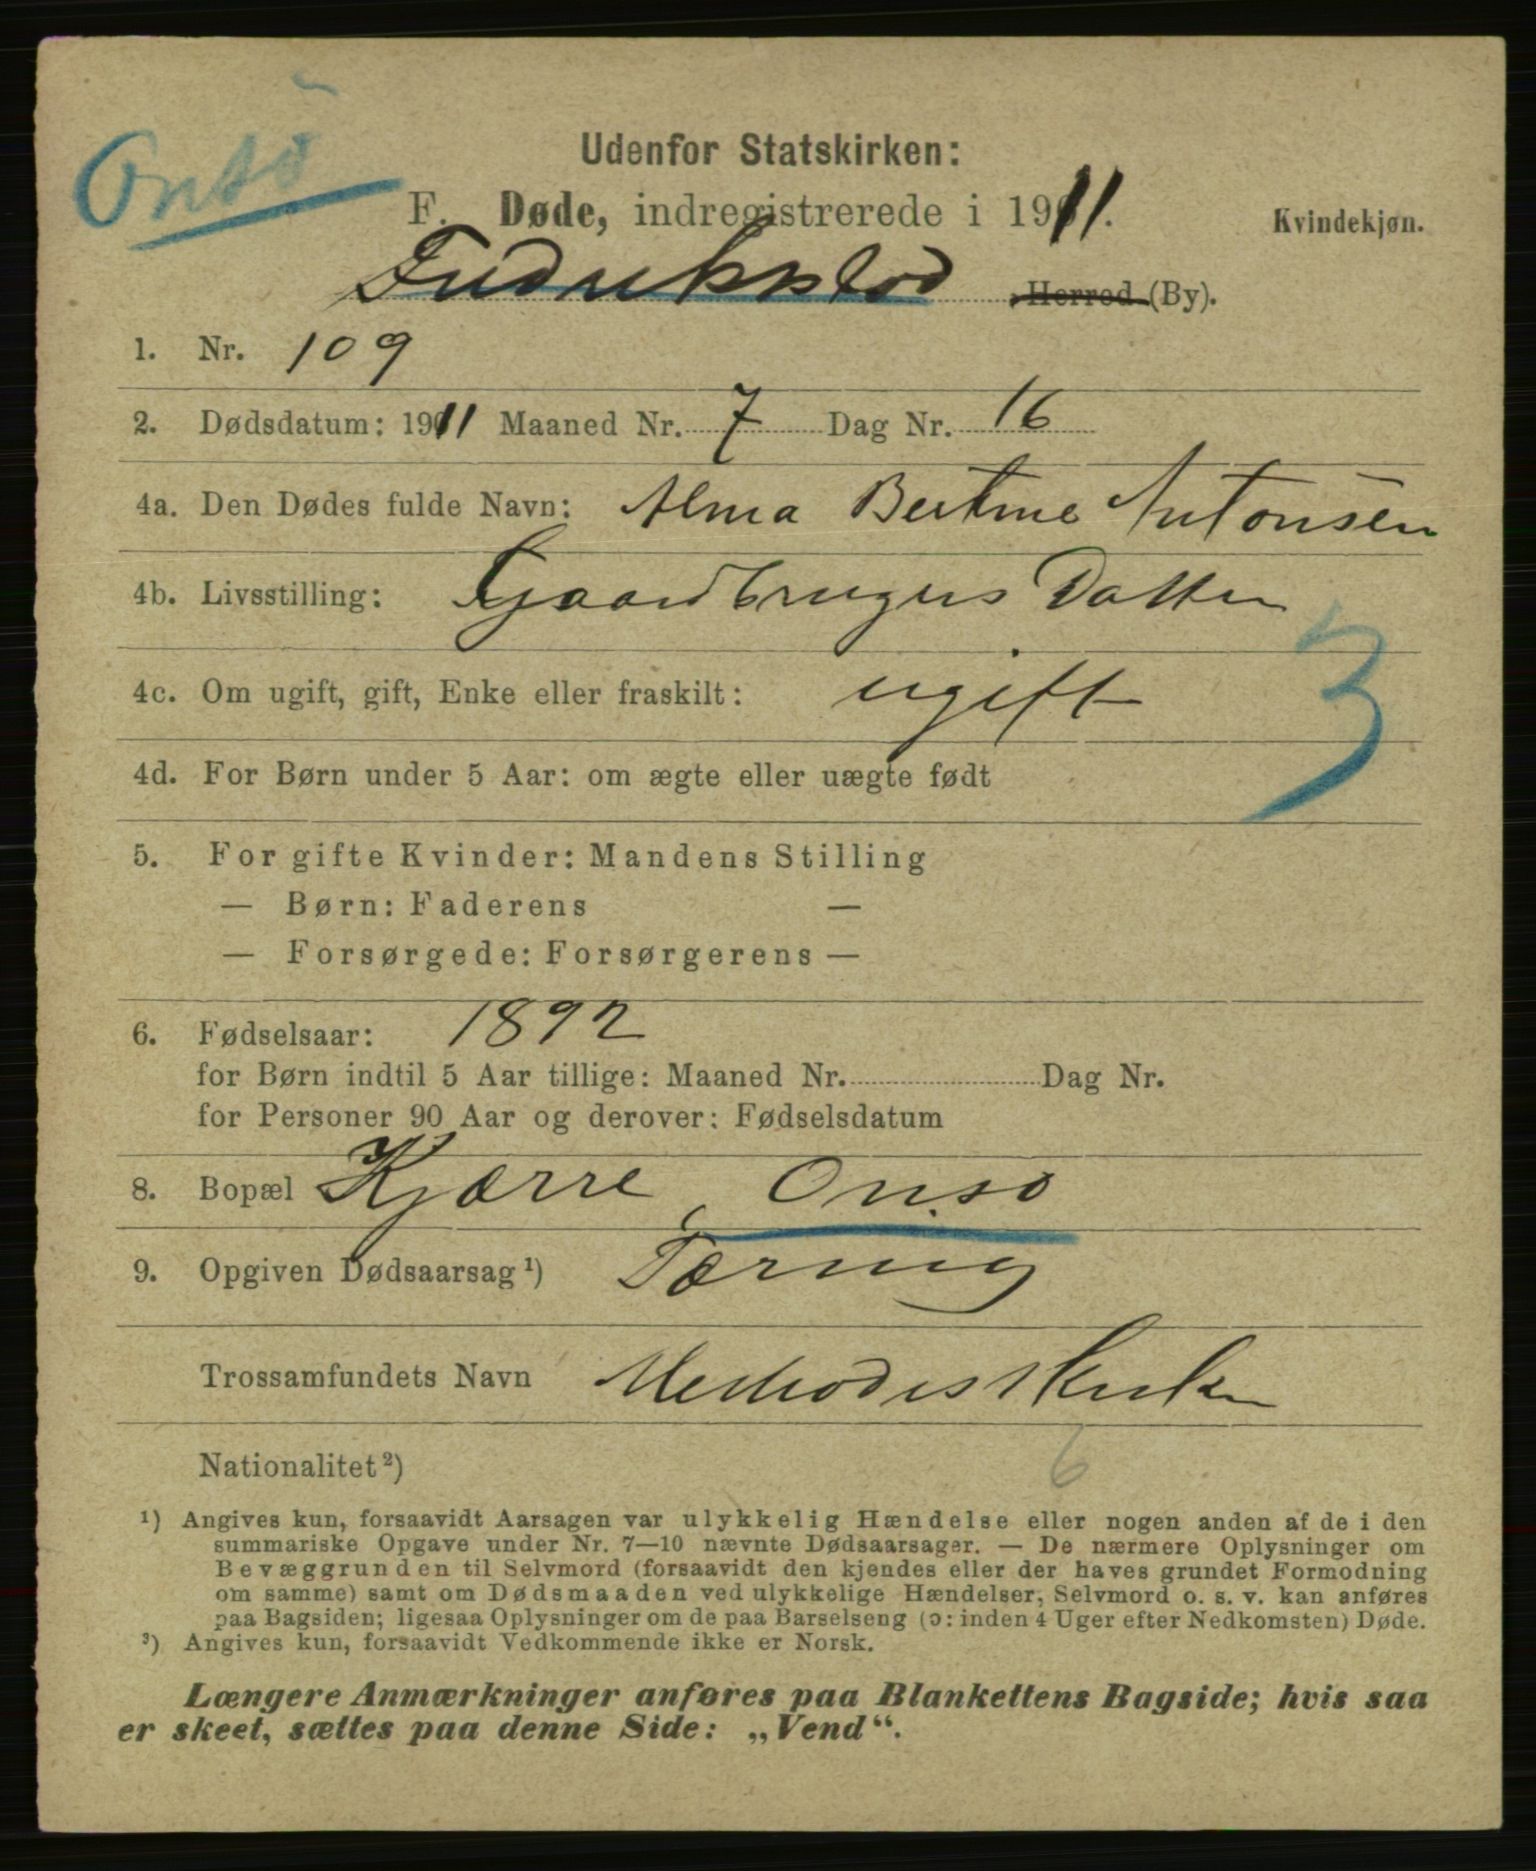 Onsö
Udenfor Statskirken:
F. Døde, indregistrerede i 1911.
Kvindekjøn.
Fredrikstad Herred (By).
1. Nr. 109
2. Dødsdatum: 1911 Maaned Nr. 7 Dag Nr. 16
4a. Den Dødes fulde Navn: Alma Bertine Antonsen
4b. Livsstilling: Gaardbrugers Datter
4c. Om ugift, gift, Enke eller fraskilt: ugift
3
4d. For Børn under 5 Aar: om ægte eller uægte født
5. For gifte Kvinder: Mandens Stilling
— Børn: Faderens —
— Forsørgede: Forsørgerens —
6. Fødselsaar: 1892
for Børn indtil 5 Aar tillige: Maaned Nr. Dag Nr.
for Personer 90 Aar og derover: Fødselsdatum
8. Bopæl Kjærre, Onsö
9. Opgiven Dødsaarsag ¹) Tæring
Trossamfundets Navn Methodistkirken
Nationalitet ²)
6
¹) Angives kun, forsaavidt Aarsagen var ulykkelig Hændelse eller nogen anden af de i den
summariske Opgave under Nr. 7—10 nævnte Dødsaarsager. — De nærmere Oplysninger om
Bevæggrunden til Selvmord (forsaavidt den kjendes eller der haves grundet Formodning
om samme) samt om Dødsmaaden ved ulykkelige Hændelser, Selvmord o. s. v. kan anføres
paa Bagsiden; ligesaa Oplysninger om de paa Barselseng (ɔ: inden 4 Uger efter Nedkomsten) Døde.
³) Angives kun, forsaavidt Vedkommende ikke er Norsk.
Længere Anmærkninger anføres paa Blankettens Bagside; hvis saa
er skeet, sættes paa denne Side: „Vend“.